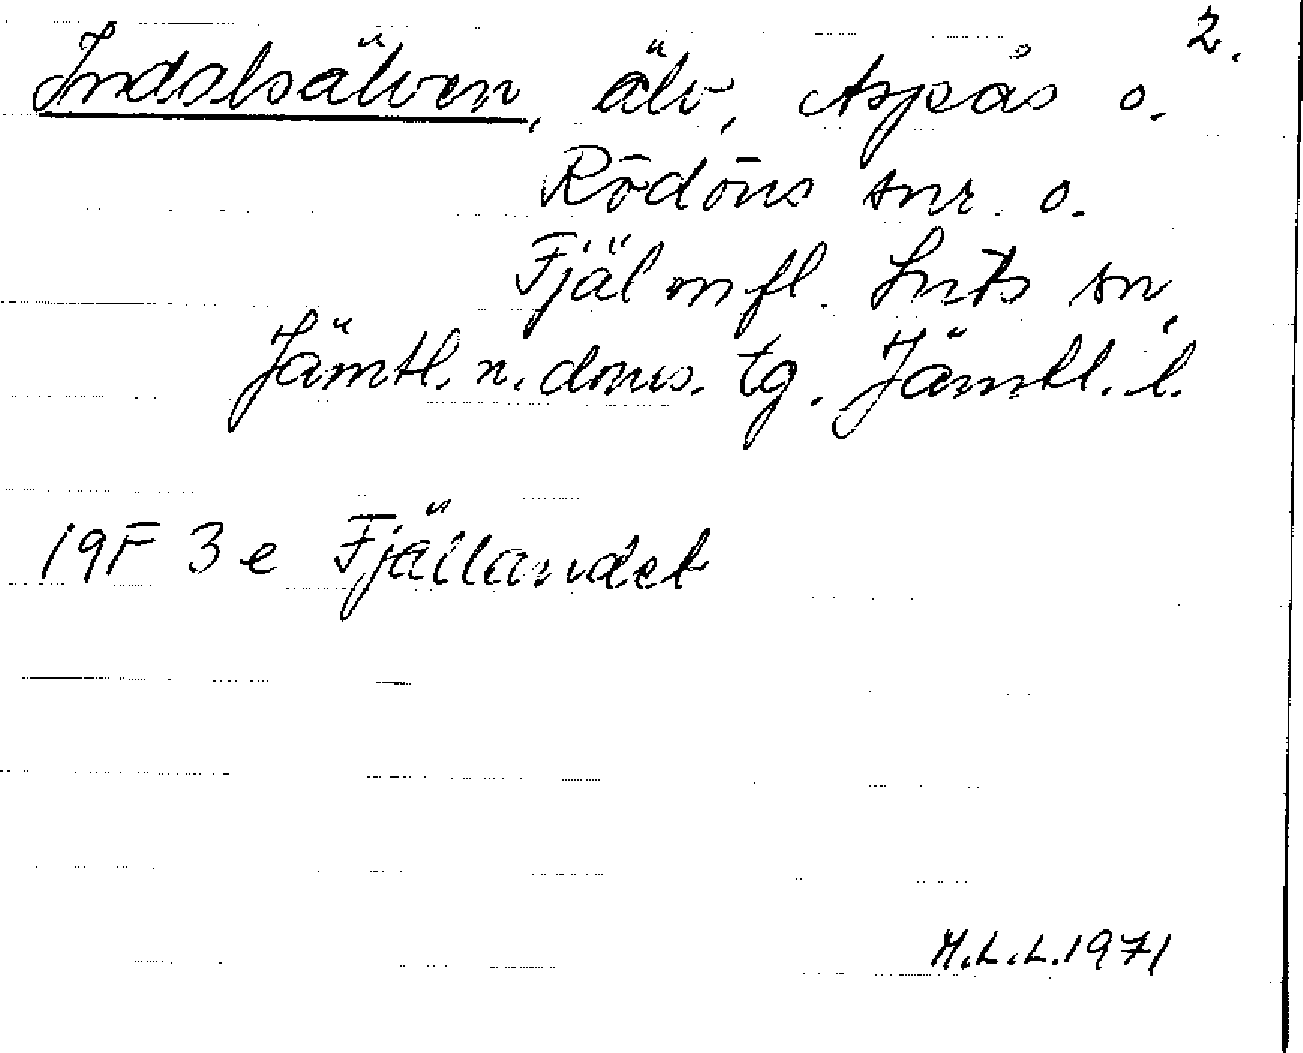 2.
Indalsälven, älv, Aspås o.
Rödöns snr. o.
Fjäl mfl. Lnts sn,
Jämtl. n. doms. tg. Jämtl. l.
19F 3e Fjällandet
M.L.L. 1971